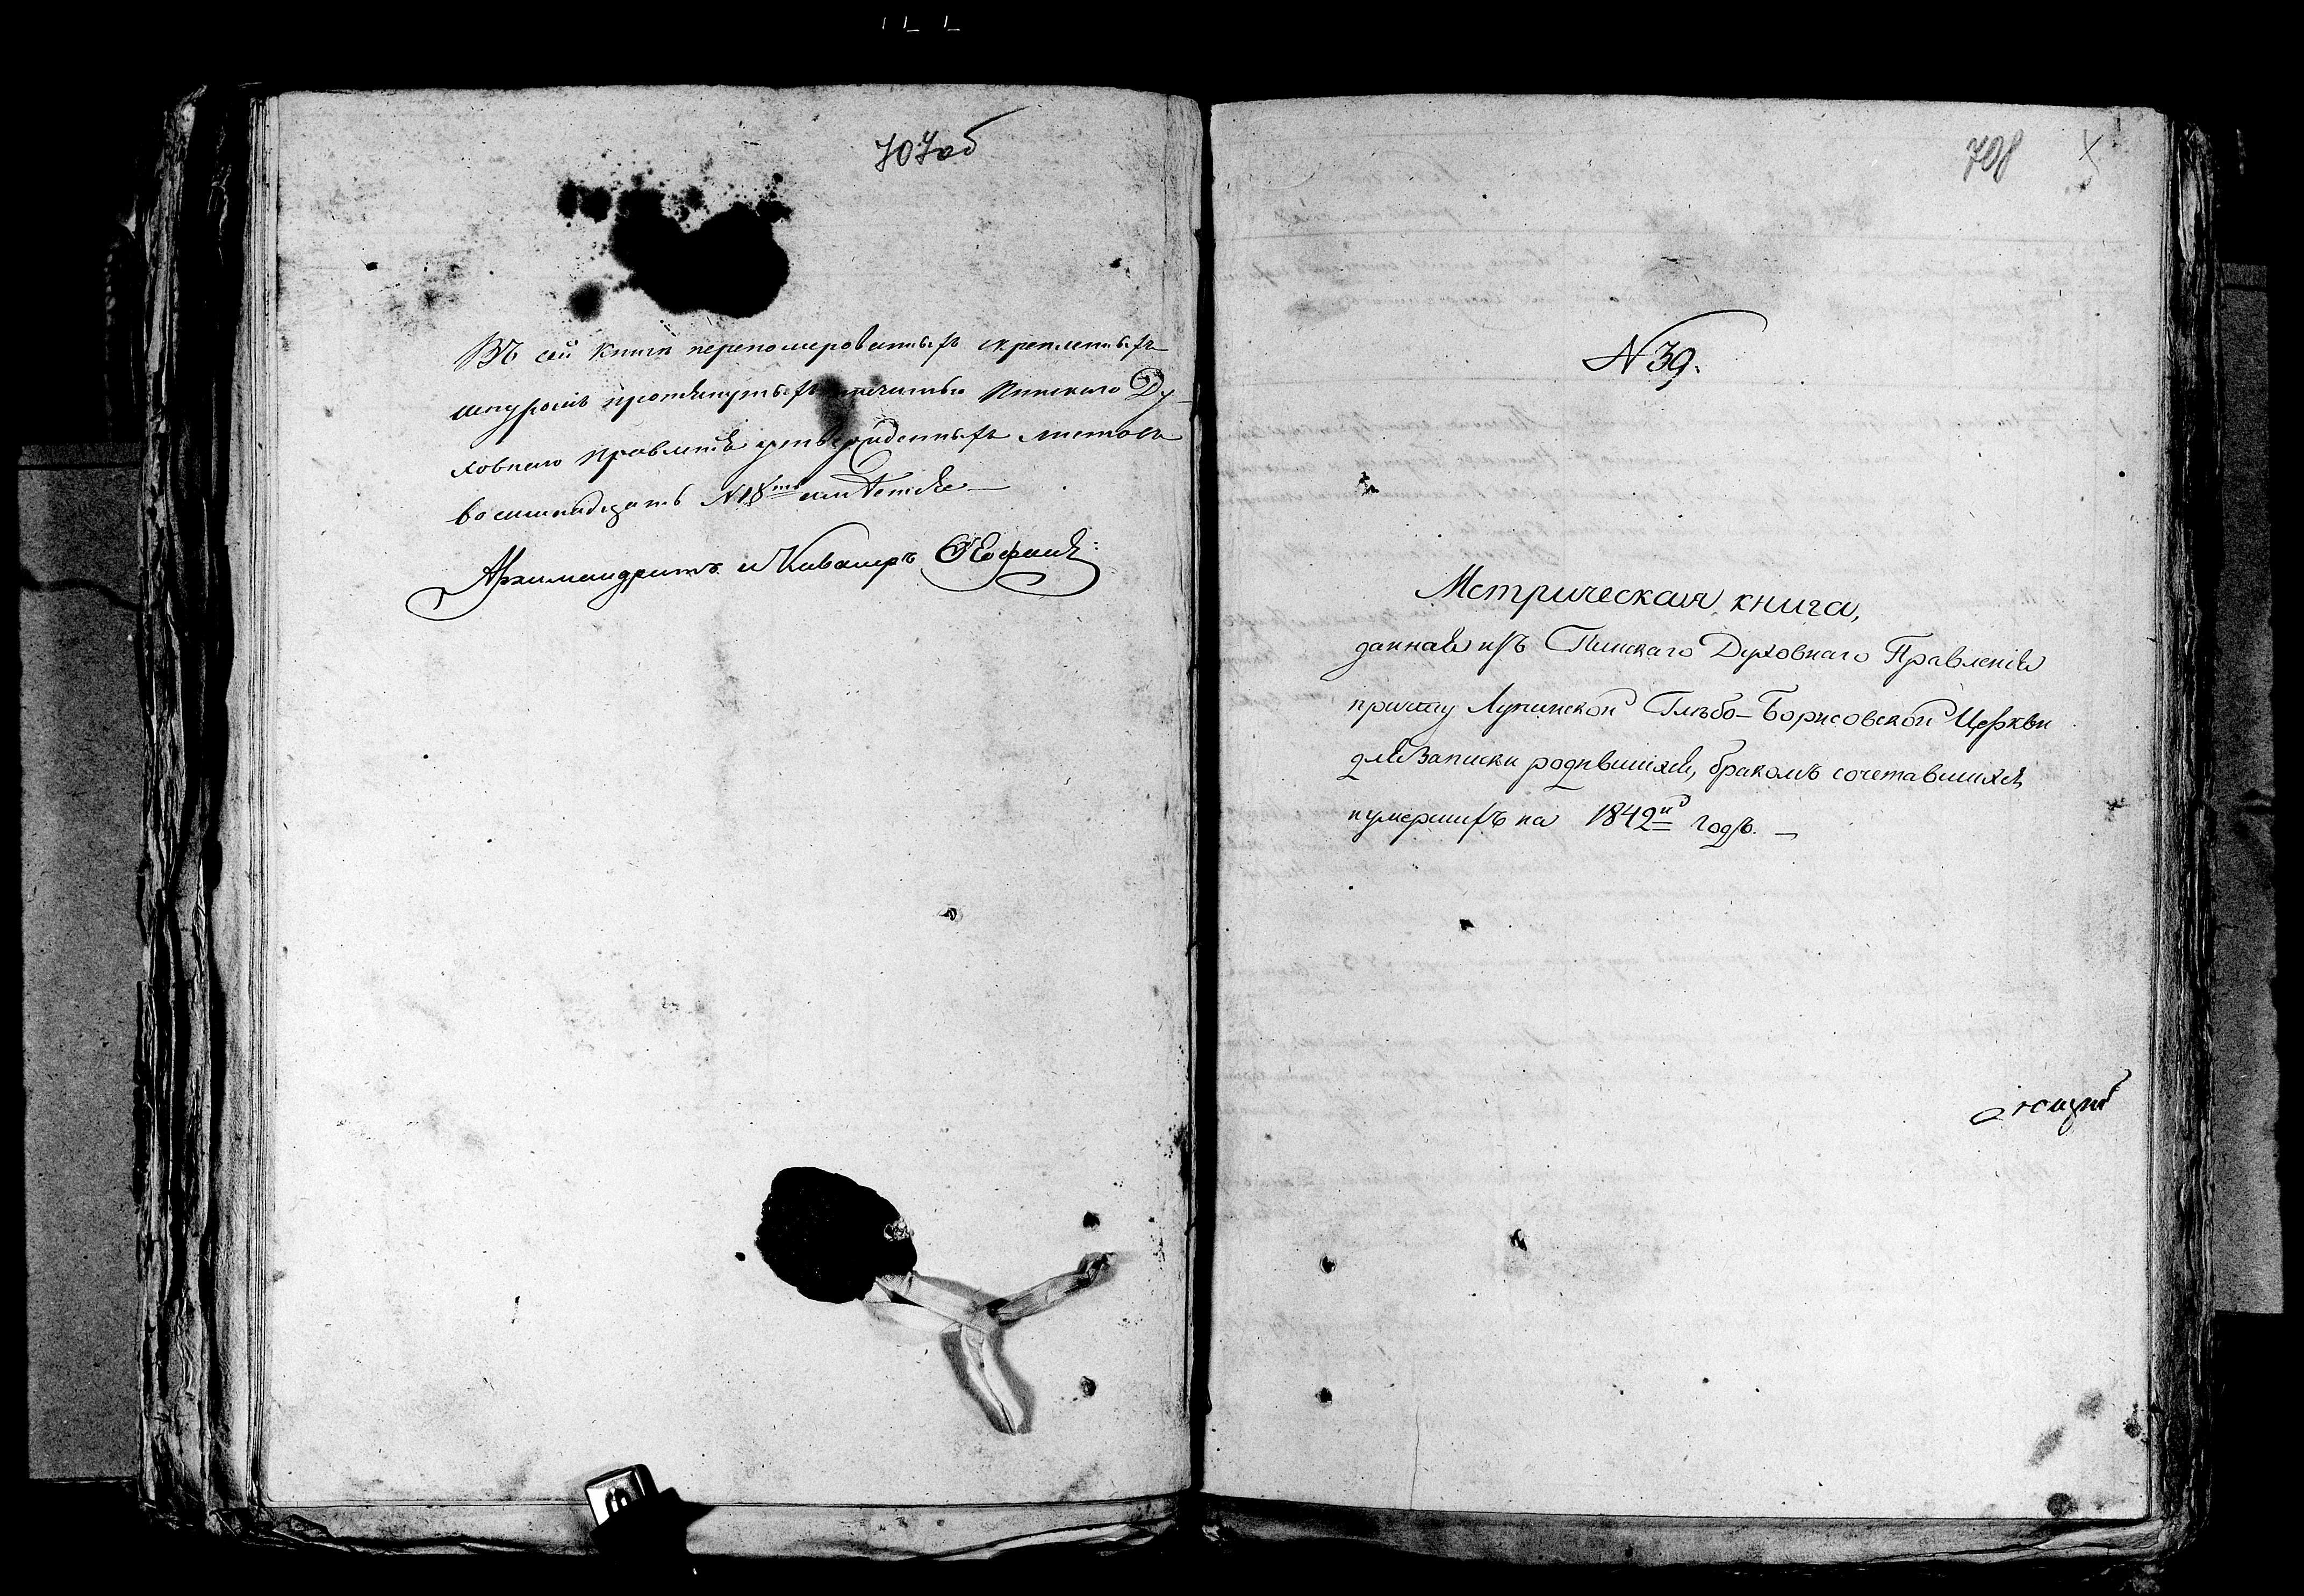 707об
Въ сей книги переномерованныхъ скрепленныхъ
шнуромъ протянутыхъ печатью Пинскаго Ду-
ховнаго Правленія утвержденныхъ листовъ
восемнадцать N 18ть имѣется —
Архимандритъ и Кавалеръ
708
N 39.
Метрическая книга,
данная изъ Пинскаго Духовнаго Правленія
причту Лунинской Глѣбо-Борисовской Церкви
для записки родившихся, бракомъ сочетавшихся,
и умершихъ на 1842й годъ. —